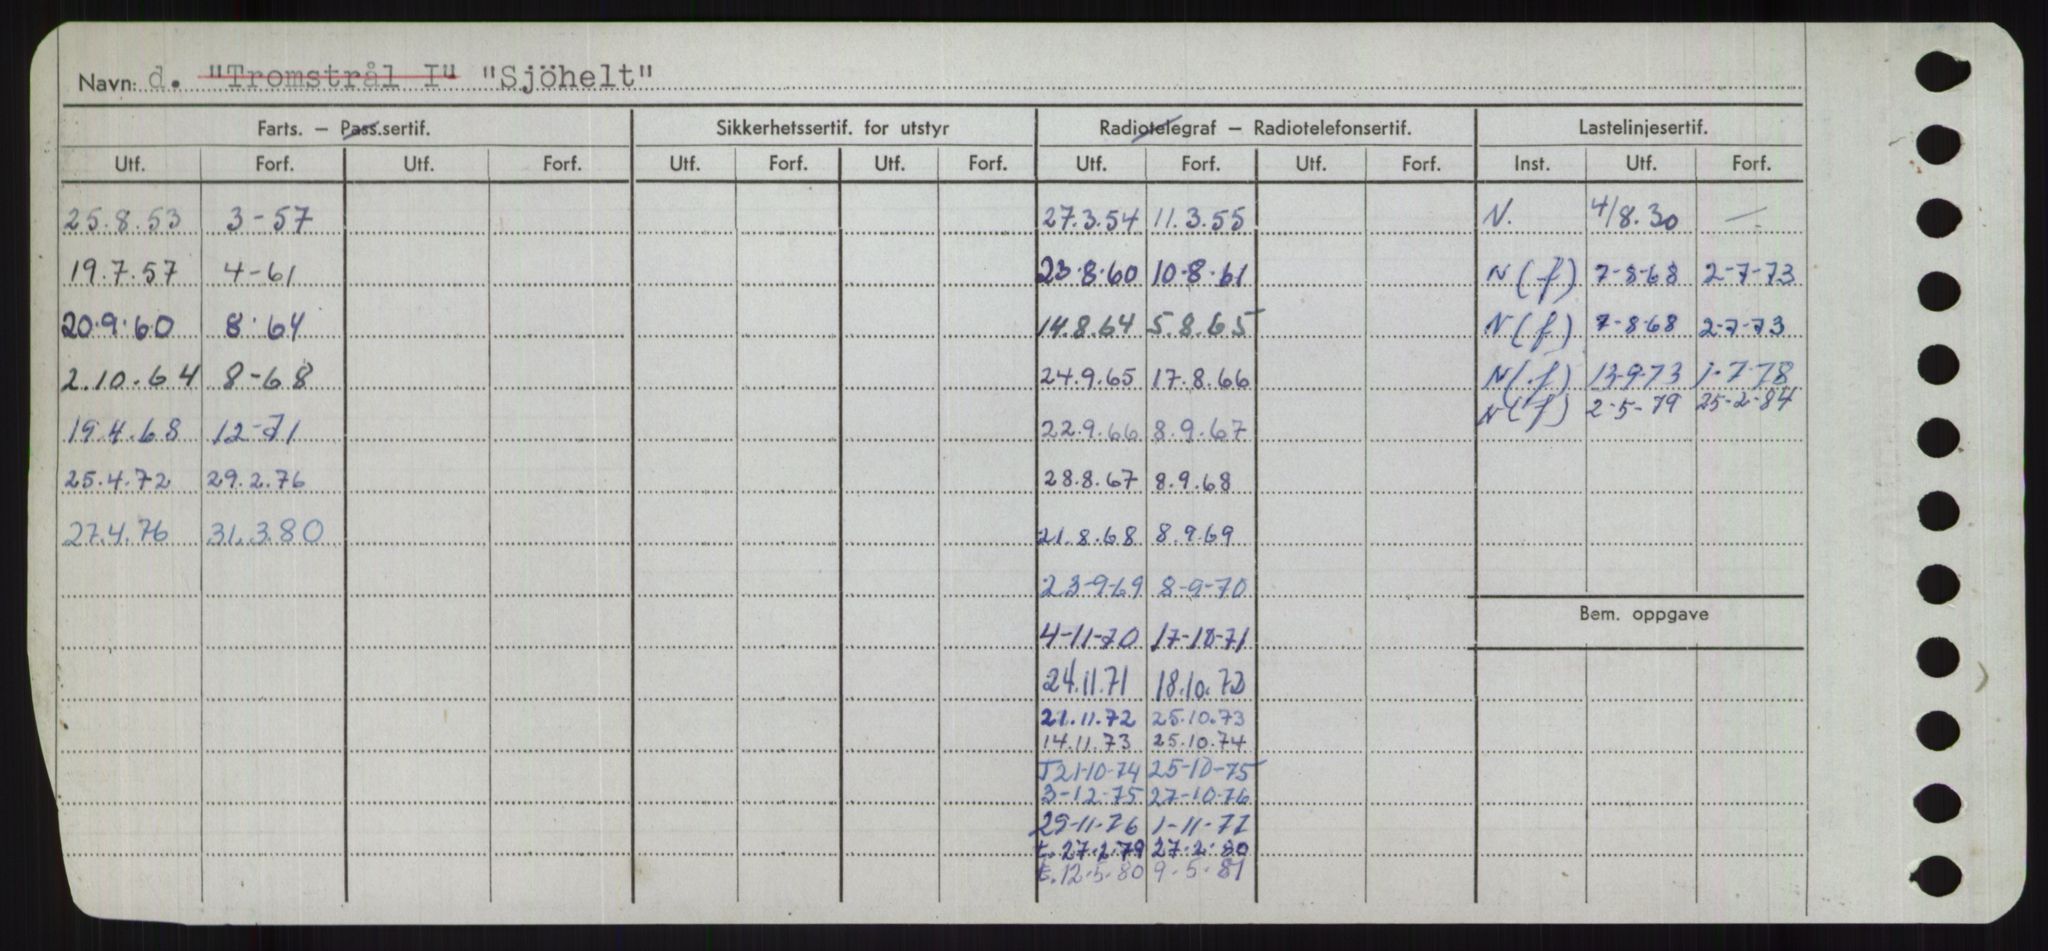 Navn: d. "Tromstrål I" "Sjöhelt"
Farts. – Pass.sertif. Sikkerhetssertif. for utstyr Radiotelegraf – Radiotelefonsertif. Lastelinjesertif.
Utf. Forf. Utf. Forf. Utf. Forf. Utf. Forf. Utf. Forf. Utf. Forf. Inst. Utf. Forf.
25.8.53 3-57 27.3.54 11.3.55 N. 4/8.30 —
19.7.57 4-61 23.8.60 10-8.61 N(f) 7-8-68 2-7-73
20.9.60 8.64 14.8.64 5.8.65 N(f) 7-8-68 2-7-73
2.10.64 8-68 24.9.65 17.8.66 N(f) 13-9-73 1-7-78
N(f) 2-5-79 25-2-84
19.4.68 12-71 22.9.66 8.9.67
25.4.72 29.2.76 28.8.67 8.9.68
27.4.76 31.3.80 21.8.68 8.9.69
23-9-69 8-9-70
Bem. oppgave
4-11-70 17-10-71
24.11.71 18.10.72
21.11.72 25.10.73
14.11.73 25.10.74
T21-10-74 25-10-75
3-12-75 27-10-76
29-11-76 1-11-77
t.27.2.79 27.2.80
t.12.5.80 9.5.81